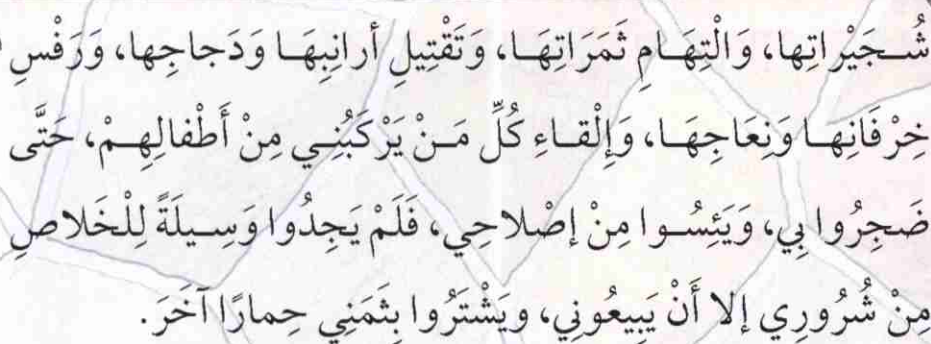 شُجَيْرَاتِها، وَالْتِهَامِ ثَمَرَاتِهَا، وَتَقْتِيلِ أرانِبِهَا وَدَجاجِها، وَرَفْسِ
خِرْفَانِهَا وَنِعَاجِهَا، وَإِلْقاءِ كُلِّ مَنْ يَرْكَبُنِي مِنْ أَطْفالِهِمْ، حَتَّى
ضَجِرُوا بِي، وَيَئِسُوا مِنْ إصْلاحِي، فَلَمْ يَجِدُوا وَسِيلَةً لِلْخَلاصِ
مِنْ شُرُورِي إلا أَنْ يَبِيعُونِي، ويَشْتَرُوا بِثَمَنِي حِمارًا آخَرَ.